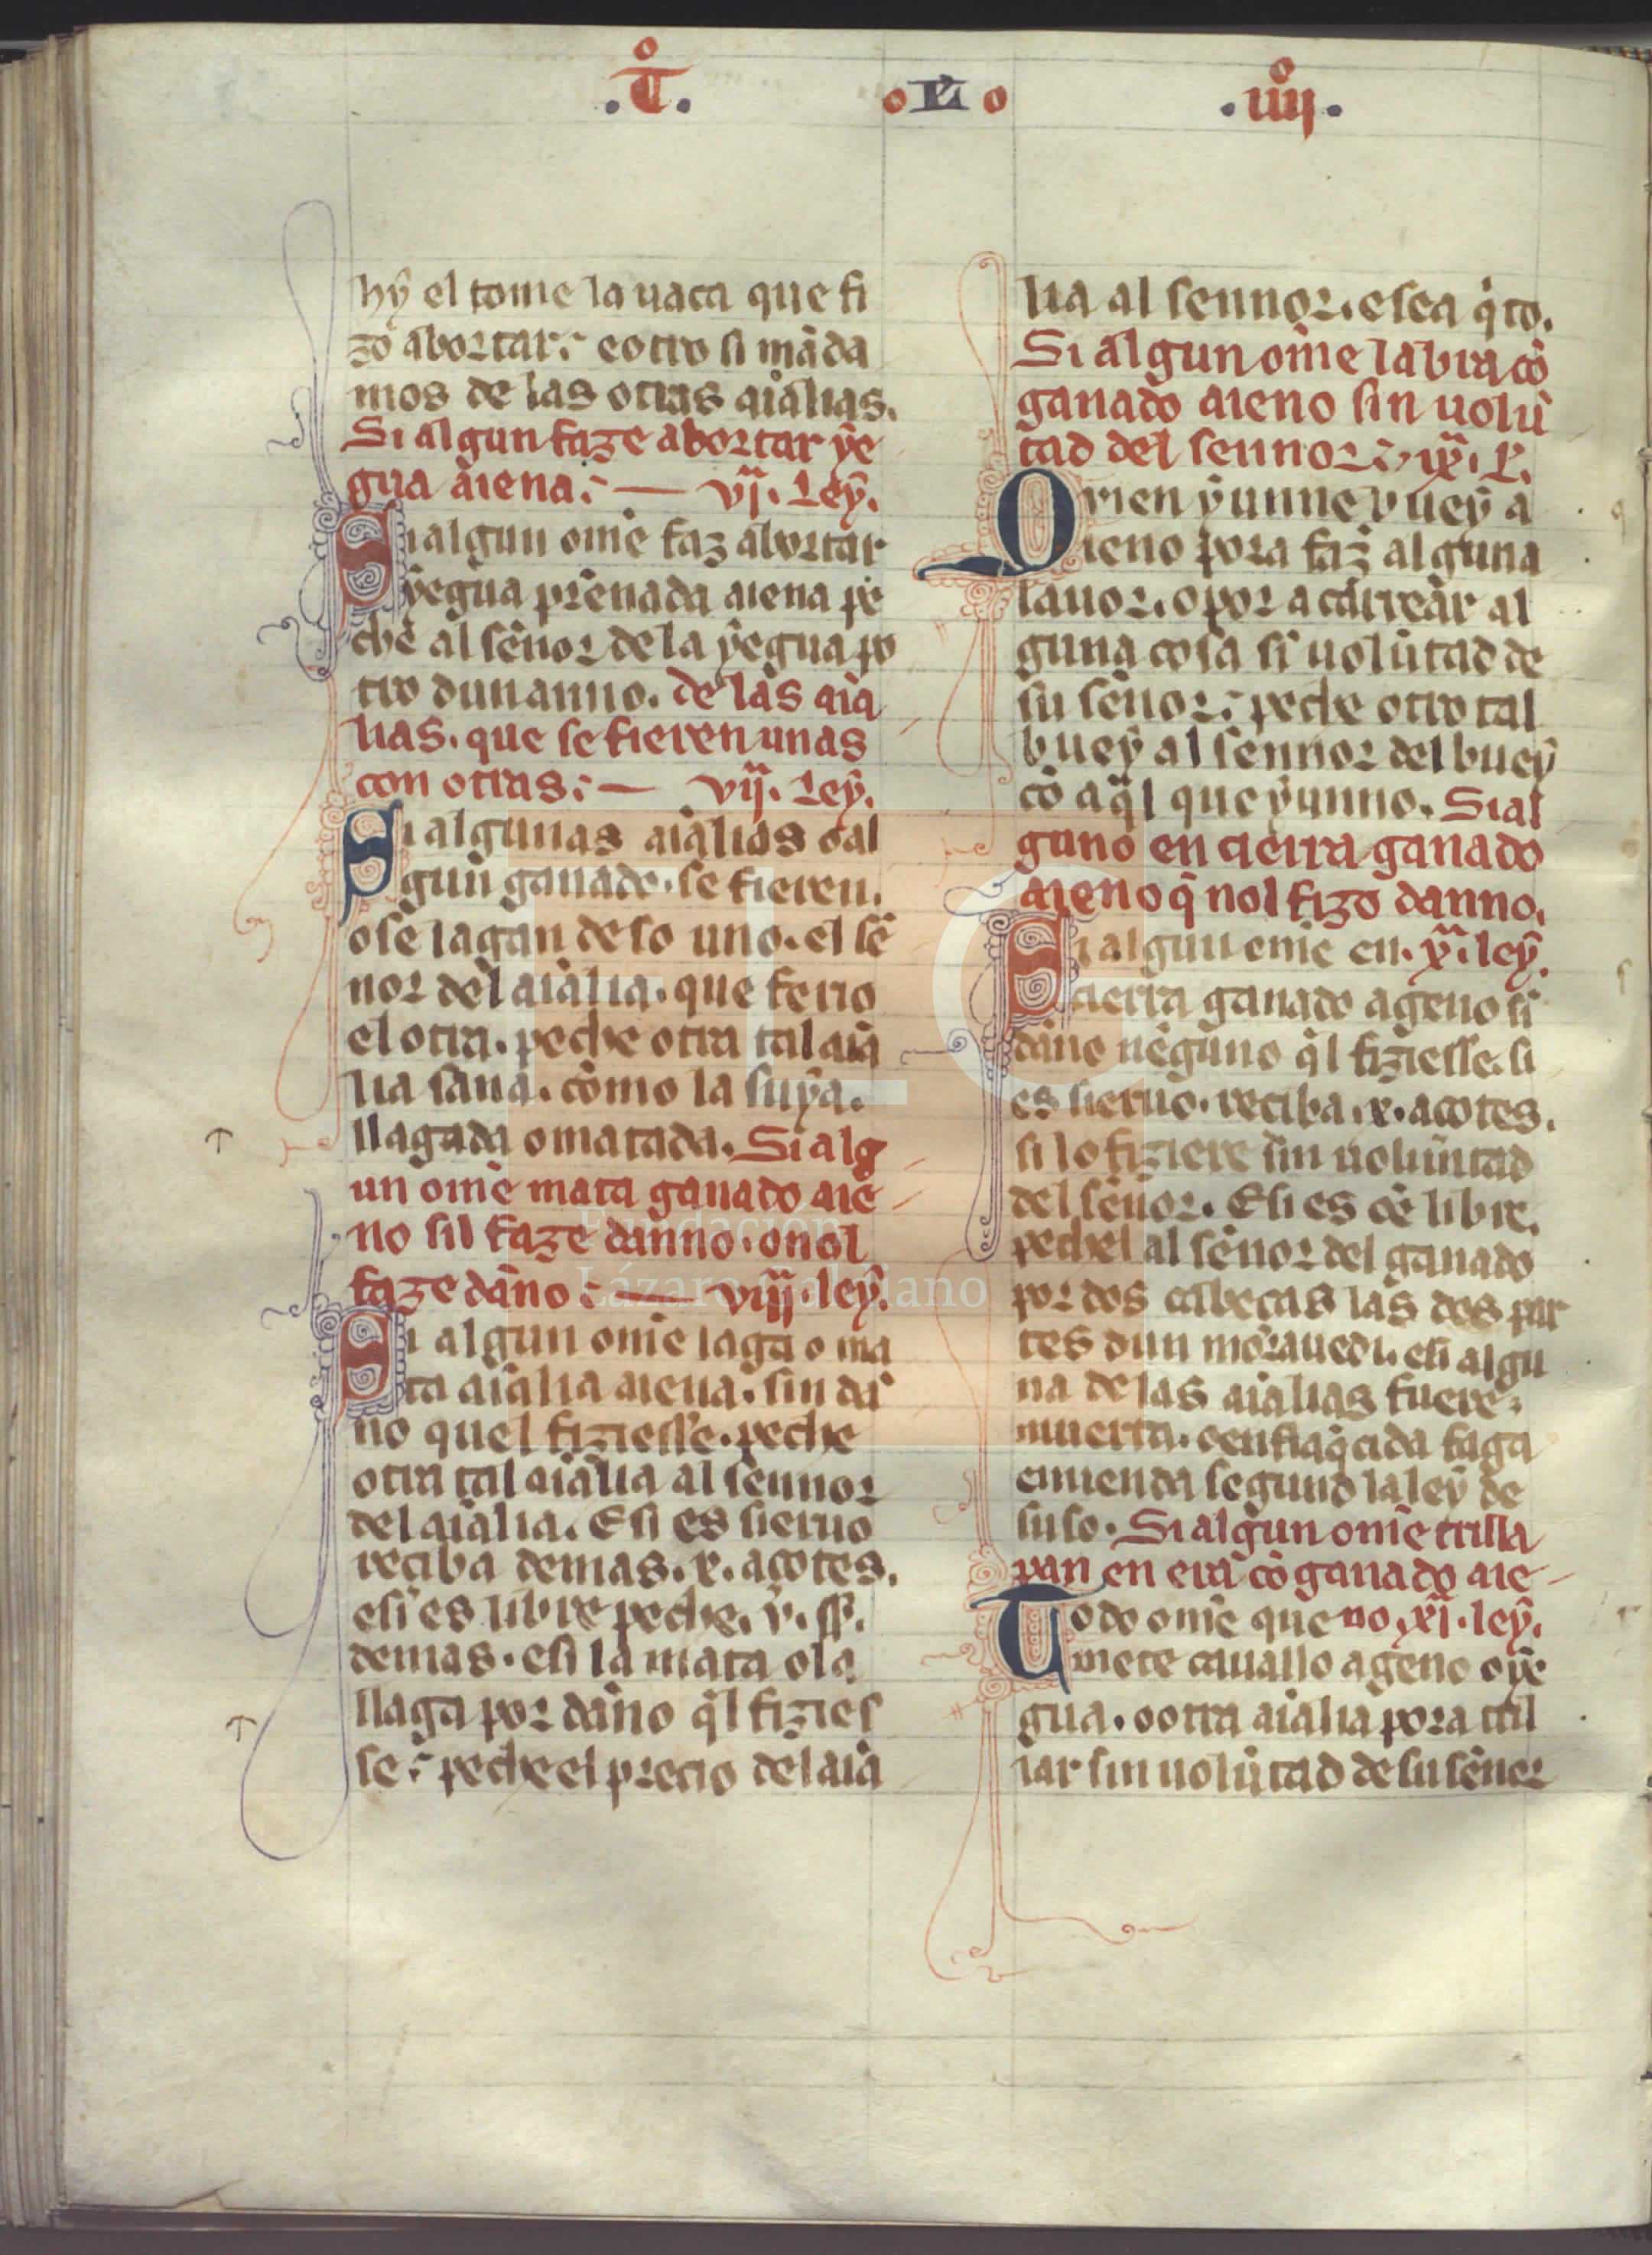 .T̊. o Lͥ o .iiij̊.
hẏ el tome la uaca que fi
zo abortar: e otro si mãda
mos de las otras aĩalias.
Si algun faze abortar ye
gua aiena: — vj.ª Ley.
Si algun omẽ faz abortar
yegua prẽnada aiena pe
che al sẽnor de la yegua po
tro dun anno. de las aĩa
lias. que se fieren unas
con otras: — vij.ª Ley.
Si algunas aĩalias o al
gun ganado. se fieren.
o se lagan de so uno. el sẽ
nor del aĩalia. que ferio
el otra. peche otra tal aĩa
lia sana. como la suya.
llagada o matada. Si alg
un omẽ mata ganado aie
no sil faze danno. o nol
faze dãno: — viij.ª ley.
Si algun omẽ laga o ma
ta aĩalia aiena. sin dã
no quel fiziesse. peche
otra tal aĩalia al sennor
del aĩalia. E si es sieruo
reciba demas. x. açotes.
e si es libre peche. v. ss̃.
demas. e si la mata o la
llaga por dãno q̃l fizies
se: peche el precio del aĩa
lia al sennor. e sea q̇to.
Si algun omẽ labra cõ
ganado aieno sin uolũ
tad del sennor: ix.ª L̃.
Qvien ẏunne buey a
ieno pora faz̃ alguna
lauor. o por acarrear al
guna cosa sĩ uolũtad de
su sẽnor: peche otro tal
buey al sennor del buey
cõ aq̃l que ẏunno. Si al
guno encierra ganado
aieno q̃ nol fizo danno.
Si algun omẽ en. x.ª ley.
cierra ganado ageno sĩ
dãno nenguno q̃l fiziesse. si
es sieruo. reciba. x. açotes.
si lo fiziere sin uoluntad
del sẽnor. E si es ome libre.
pechel al sẽnor del ganado
por dos cabeças las dos par
tes dun morauedi. e si algu
na de las aĩalias fuere
muerta. o enflaq̃cida faga
emienda segund la ley de
suso. Si algun omẽ trilla
pan en era cõ ganado aie
Todo omẽ que no. xj.ª ley.
mete cauallo ageno o ye
gua. o otra aĩalia pora tril
lar sin uolũtad de su sẽnor
FLG
Fundación
Lázaro Galdiano